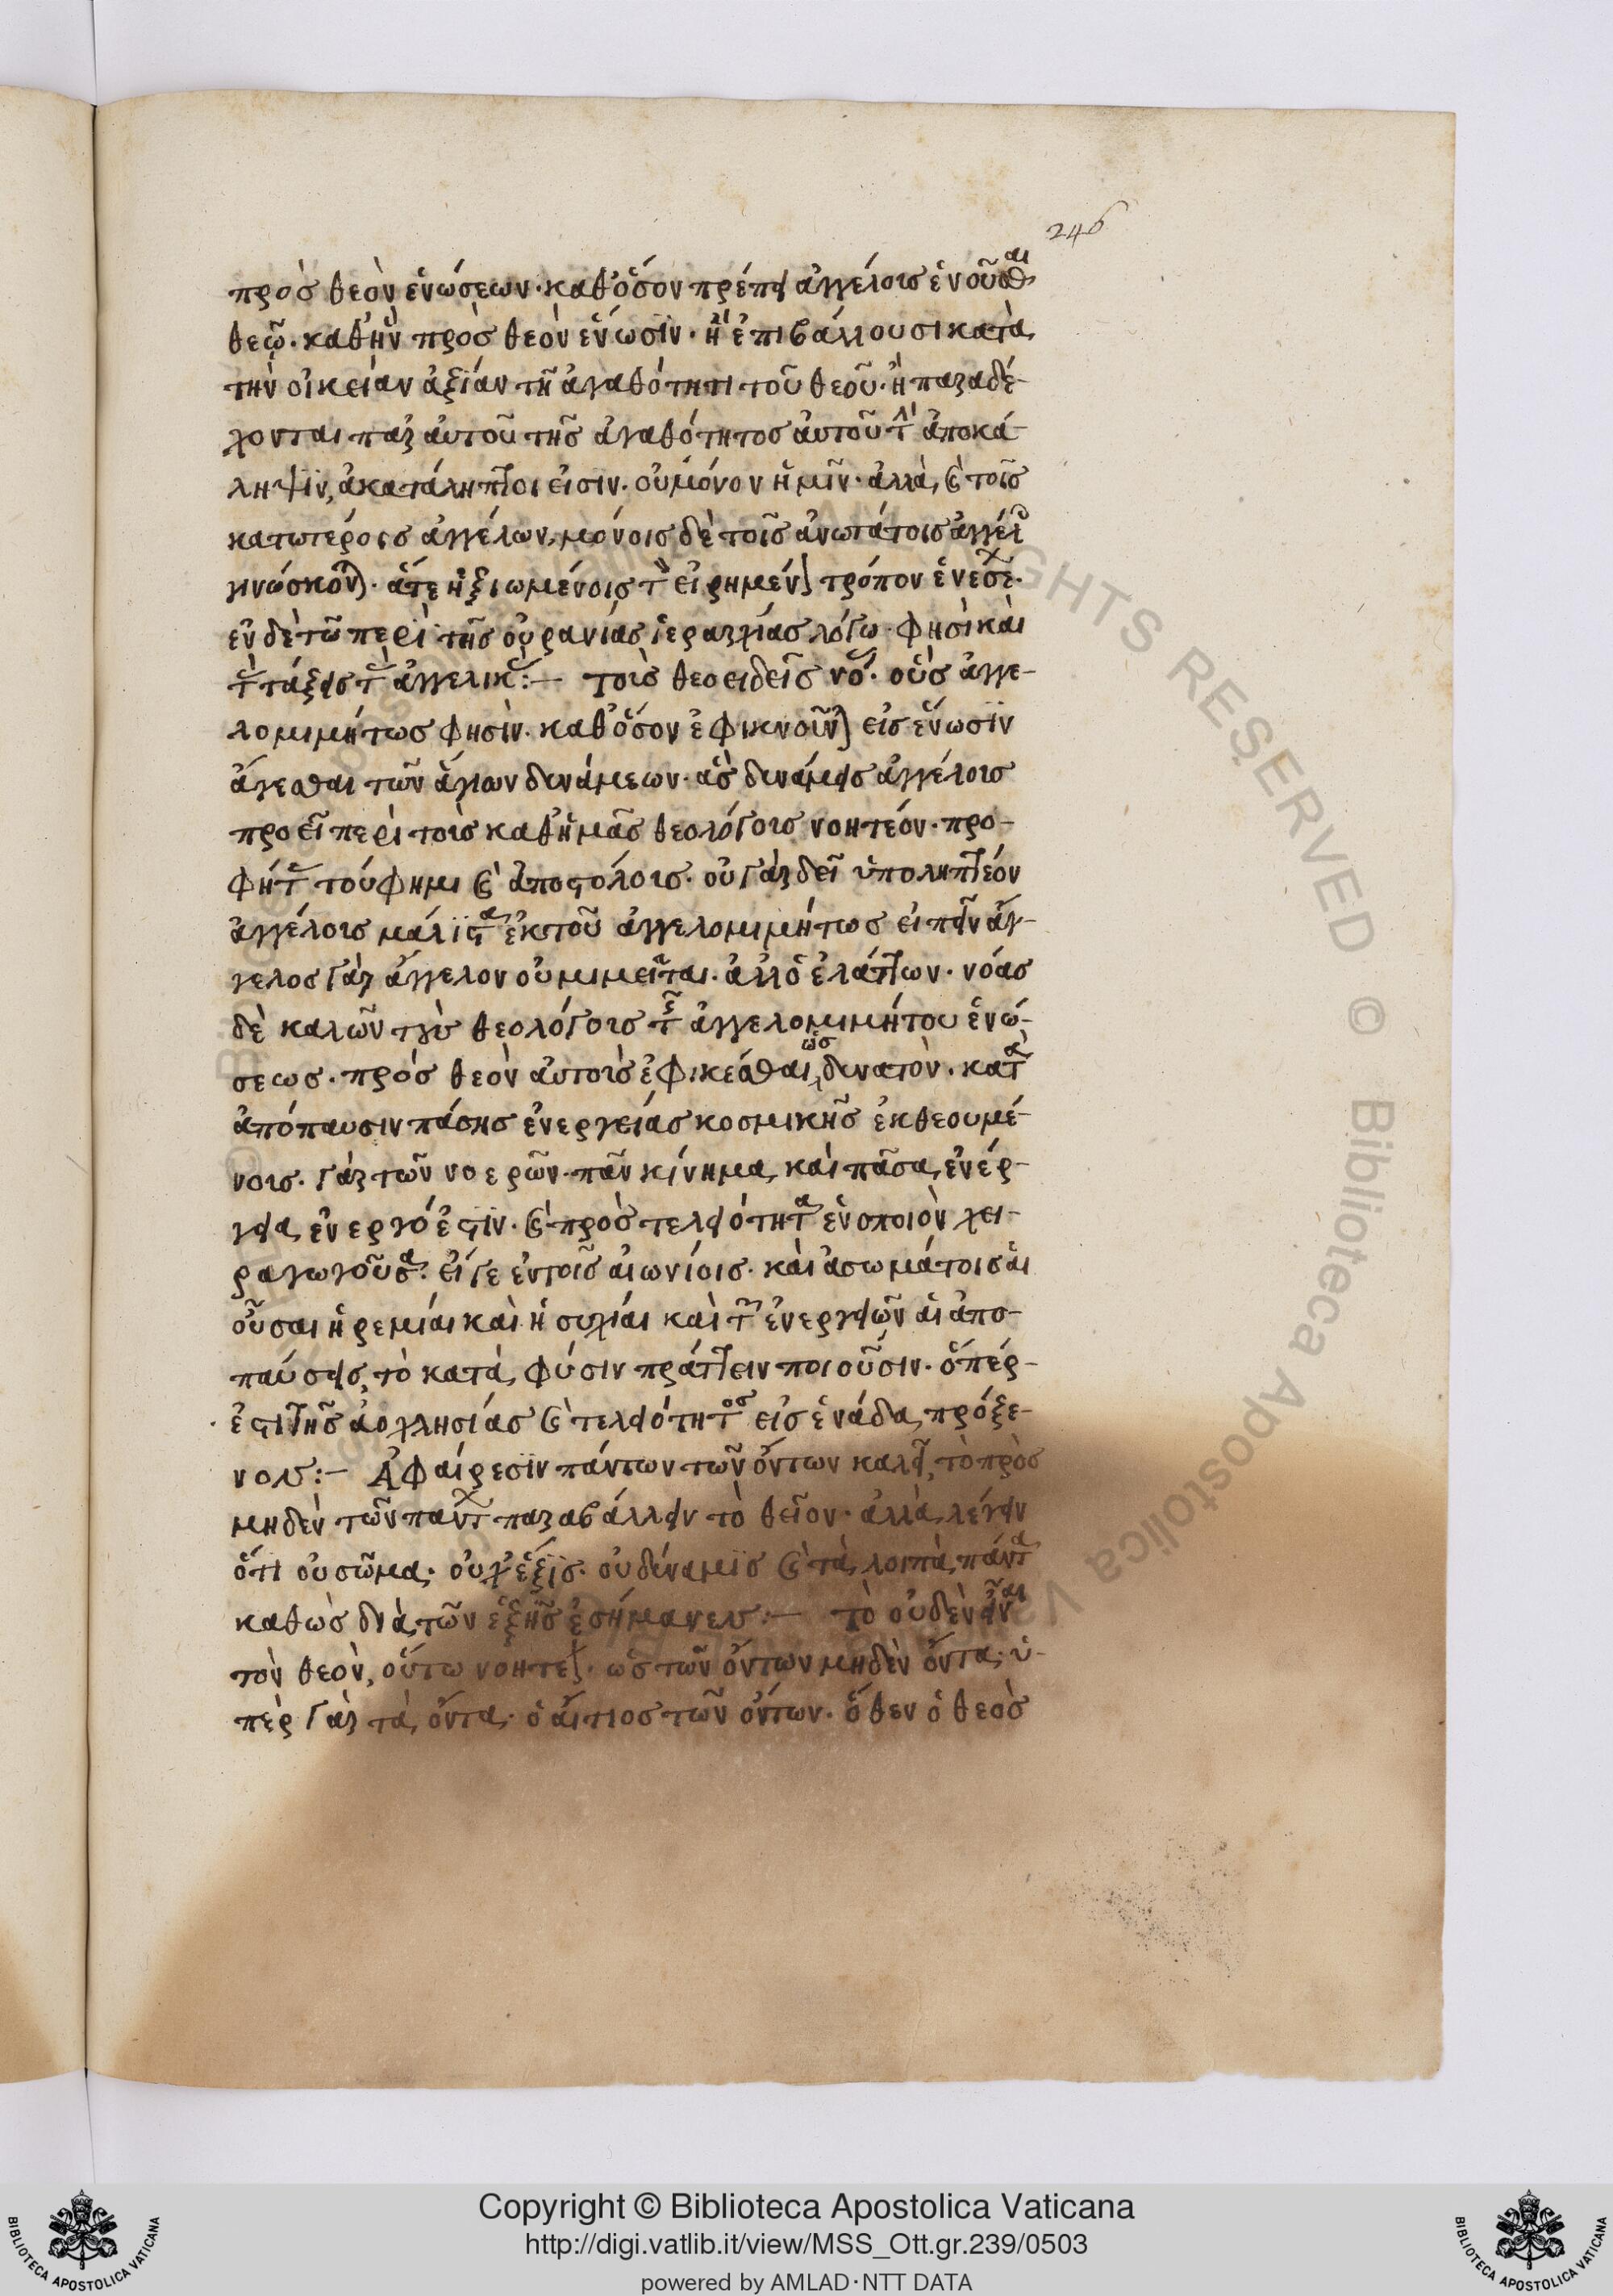 246
πρὸς θεὸν ἑνώσεων· καθόσον πρέπει ἀγγέλοις ἑνοῦσθαι
θεῷ. καθ' ἣν πρὸς θεὸν ἕνωσϊν· ἢ ἐπιβάλλουσι κατὰ
τὴν οἰκείαν ἀξίαν τῇ ἀγαθότητι τοῦ θεοῦ· ἢ παραδέ-
χονται παρ' αὐτοῦ τῆς ἀγαθότητος αὐτοῦ τὴν ἀποκά-
ληψϊν, ἀκατάληπτοι εἰσιν. οὐ μόνον ἡμῖν· ἀλλὰ καὶ τοῖς
κατωτέροις ἀγγέλων, μόνοις δὲ τοῖς ἀνωτάτοις ἀγγέλοις
γινώσκονται· ἅτε ἠξιωμένοις τὸν εἰρημένον τρόπον ἑνώσεως·
ἐν δὲ τῶ περὶ τῆς οὐρανίας ἱεραρχίας λόγω· φησὶ καὶ
τὰς τάξεις τὰς ἀγγελικάς:— τοὺς θεοειδεῖς νόας· οὓς ἀγγε-
λομιμήτως φησὶν· καθόσον ἐφικνοῦνται εἰς ἕνωσϊν
ἄγεσθαι τῶν ἁγίων δυνάμεων· ἃς δυνάμεις ἀγγέλοις
προεῖπε περὶ τοὺς καθ' ἡμᾶς θεολόγοις νοητέον· προ-
φήταις τούφημι καὶ ἀποστόλοις· οὐ γὰρ δεῖ ὑποληπτέον
ἀγγέλοις μάλϊστα ἐκ τοῦ ἀγγελομιμήτως εἰπεῖν ἄγ-
γελος γὰρ ἄγγελον οὐ μιμεῖται· ἀλλ' ὁ ἐλάττων· νόας
δὲ καλῶν τοὺς θεολόγοις τῆς ἀγγελομιμήτου ἑνώ-
σεως· πρὸς θεὸν αὐτοὺς ἐφικέσθαι, ὡς δυνατὸν· κατὰ
ἀπόπαυσιν πάσης ἐνεργείας κοσμικῆς ἐκθεουμέ-
νοις· γὰρ τῶν νοερῶν· πᾶν κίνημα, καὶ πᾶσα, ἐνέρ-
γεια, ἐνεργός ἐστϊν· καὶ πρὸς τελειότητα ἑνοποιὸν χει-
ραγωγοῦσα· εἴγε ἐν τοῖς αἰωνίοις· καὶ ἀσωμάτοις αἱ
οὖσαι ἠρεμίαι καὶ ἡσυχίαι καὶ τῶν ἐνεργειῶν αἱ ἀπο-
παύσεις, τὸ κατὰ φύσιν πράττειν ποιοῦσιν· ὅπέρ-
ἐστι τῆς ἀολλησίας καὶ τελειότητος εἰς ἑνάδα, πρόξε-
νον:— Ἀφαίρεσϊν πάντων τῶν ὄντων καλεῖ, τὸ πρὸς
μηδὲν τῶν πάντων παραβάλλειν τὸ θεῖον· ἀλλὰ λέγειν
ὅτι οὐ σῶμα· οὐχ ἕξϊς· οὐ δύναμϊς καὶ τὰ λοιπὰ, πάντα
καθὼς διὰ τῶν ἑξῆς ἐσήμανεν:— τὸ οὐδὲν εἶναι
τὸν θεὸν, οὕτω νοητέον· ὡς τῶν ὄντων μηδὲν ὄντα· ὑ-
πὲρ γὰρ τὰ ὄντα· ὁ αἴτιος τῶν ὄντων· ὅθεν ὁ θεὸς
Copyright © Biblioteca Apostolica Vaticana
http://digi.vatlib.it/view/MSS_Ott.gr.239/0503
powered by AMLAD·NTT DATA